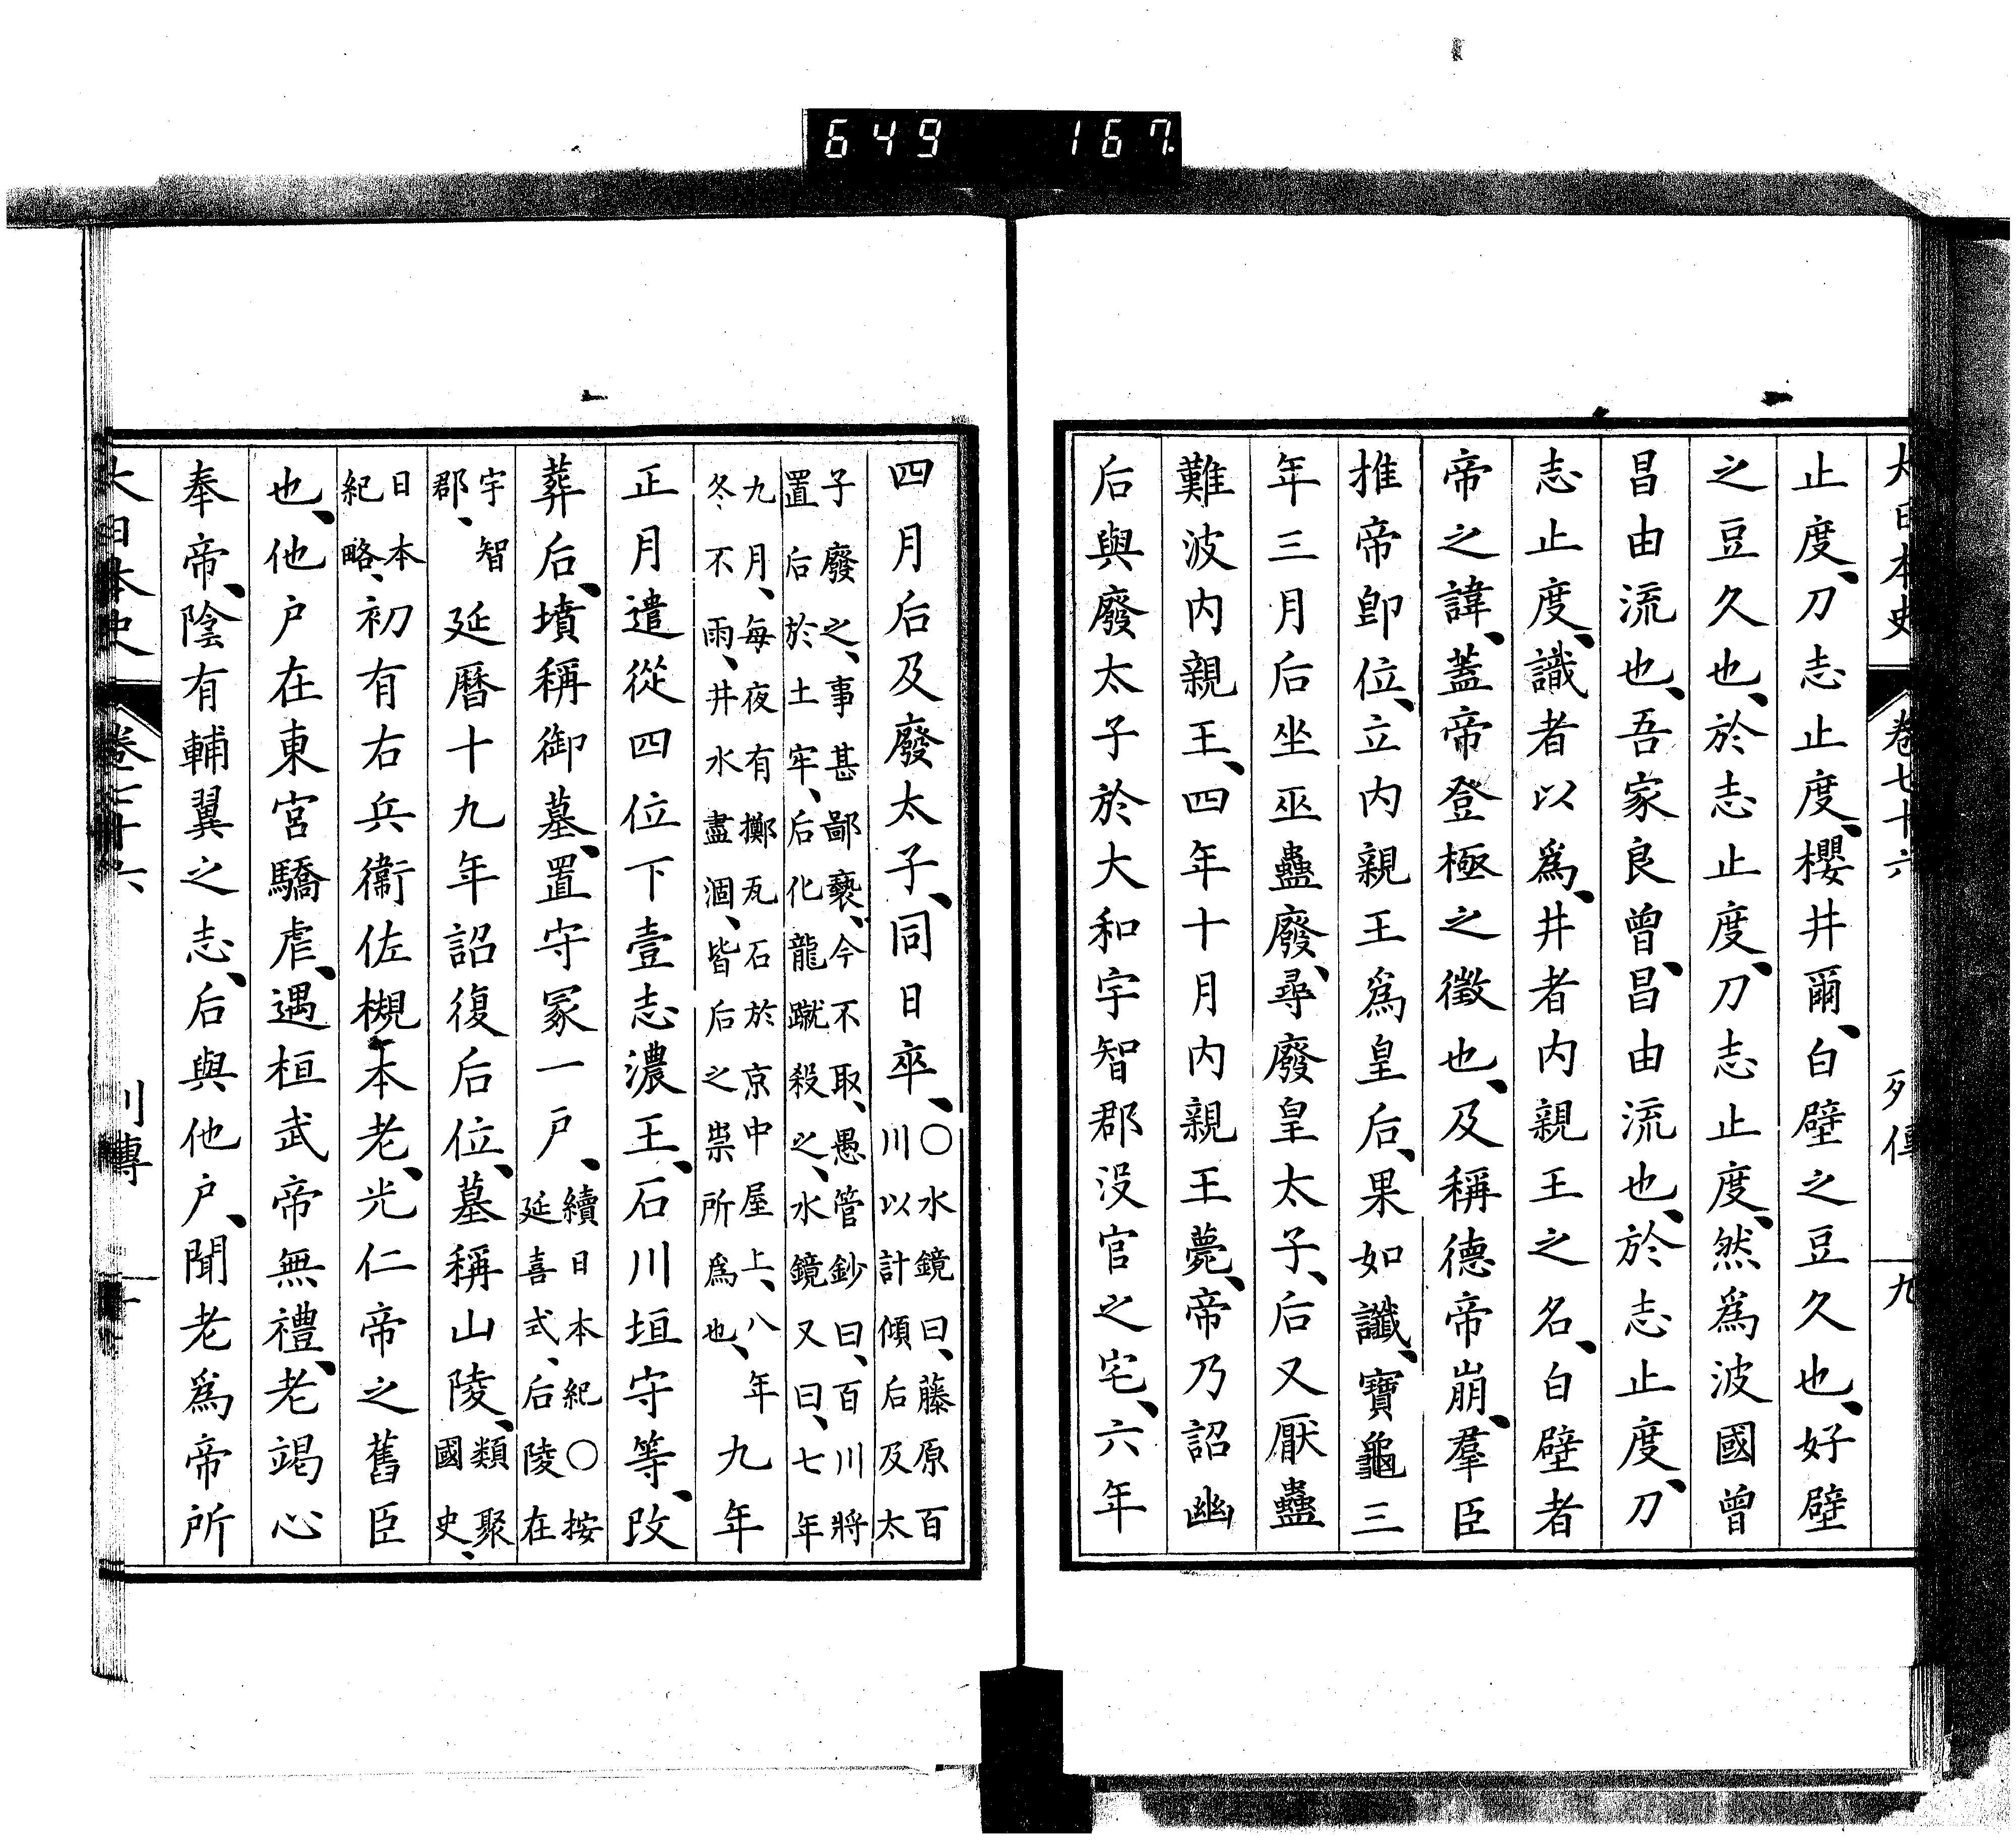 649 167
大日本史 卷七十六 列傳 九
止度、刀志止度、櫻井爾、白壁之豆久也、好壁
之豆久也、於志止度、刀志止度、然爲波國曾
昌由流也、吾家良曾、昌由流也、於志止度、刀
志止度、識者以爲、井者內親王之名、白壁者
帝之諱、蓋帝登極之徵也、及稱德帝崩、羣臣
推帝卽位、立內親王爲皇后、果如讖、寶龜三
年三月后坐巫蠱廢、尋廢皇太子、后又厭蠱
難波內親王、四年十月內親王薨、帝乃詔幽
后與廢太子於大和宇智郡沒官之宅、六年
四月后及廢太子、同日卒、〇水鏡曰、藤原百川以計傾后及太
子廢之、事甚鄙褻、今不取、愚管鈔曰、百川將置后於土牢、后化龍蹴殺之、水鏡又曰、七年
九月、每夜有擲瓦石於京中屋上、八年冬、不雨、井水盡涸、皆后之祟所爲也、九年
正月遣從四位下壹志濃王、石川垣守等、改
葬后、墳稱御墓、置守冢一戶、續日本紀〇按延喜式、后陵在
宇智郡、延曆十九年詔復后位、墓稱山陵、類聚國史、
日本紀略、初有右兵衞佐槻本老、光仁帝之舊臣
也、他戶在東宮驕虐、遇桓武帝無禮、老竭心
奉帝、陰有輔翼之志、后與他戶、聞老爲帝所
大日本史 卷七十六 列傳